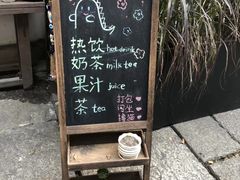 热饮 hot drink
奶茶 milk tea
果汁 juice
茶 tea 打包
闲坐
撸猫